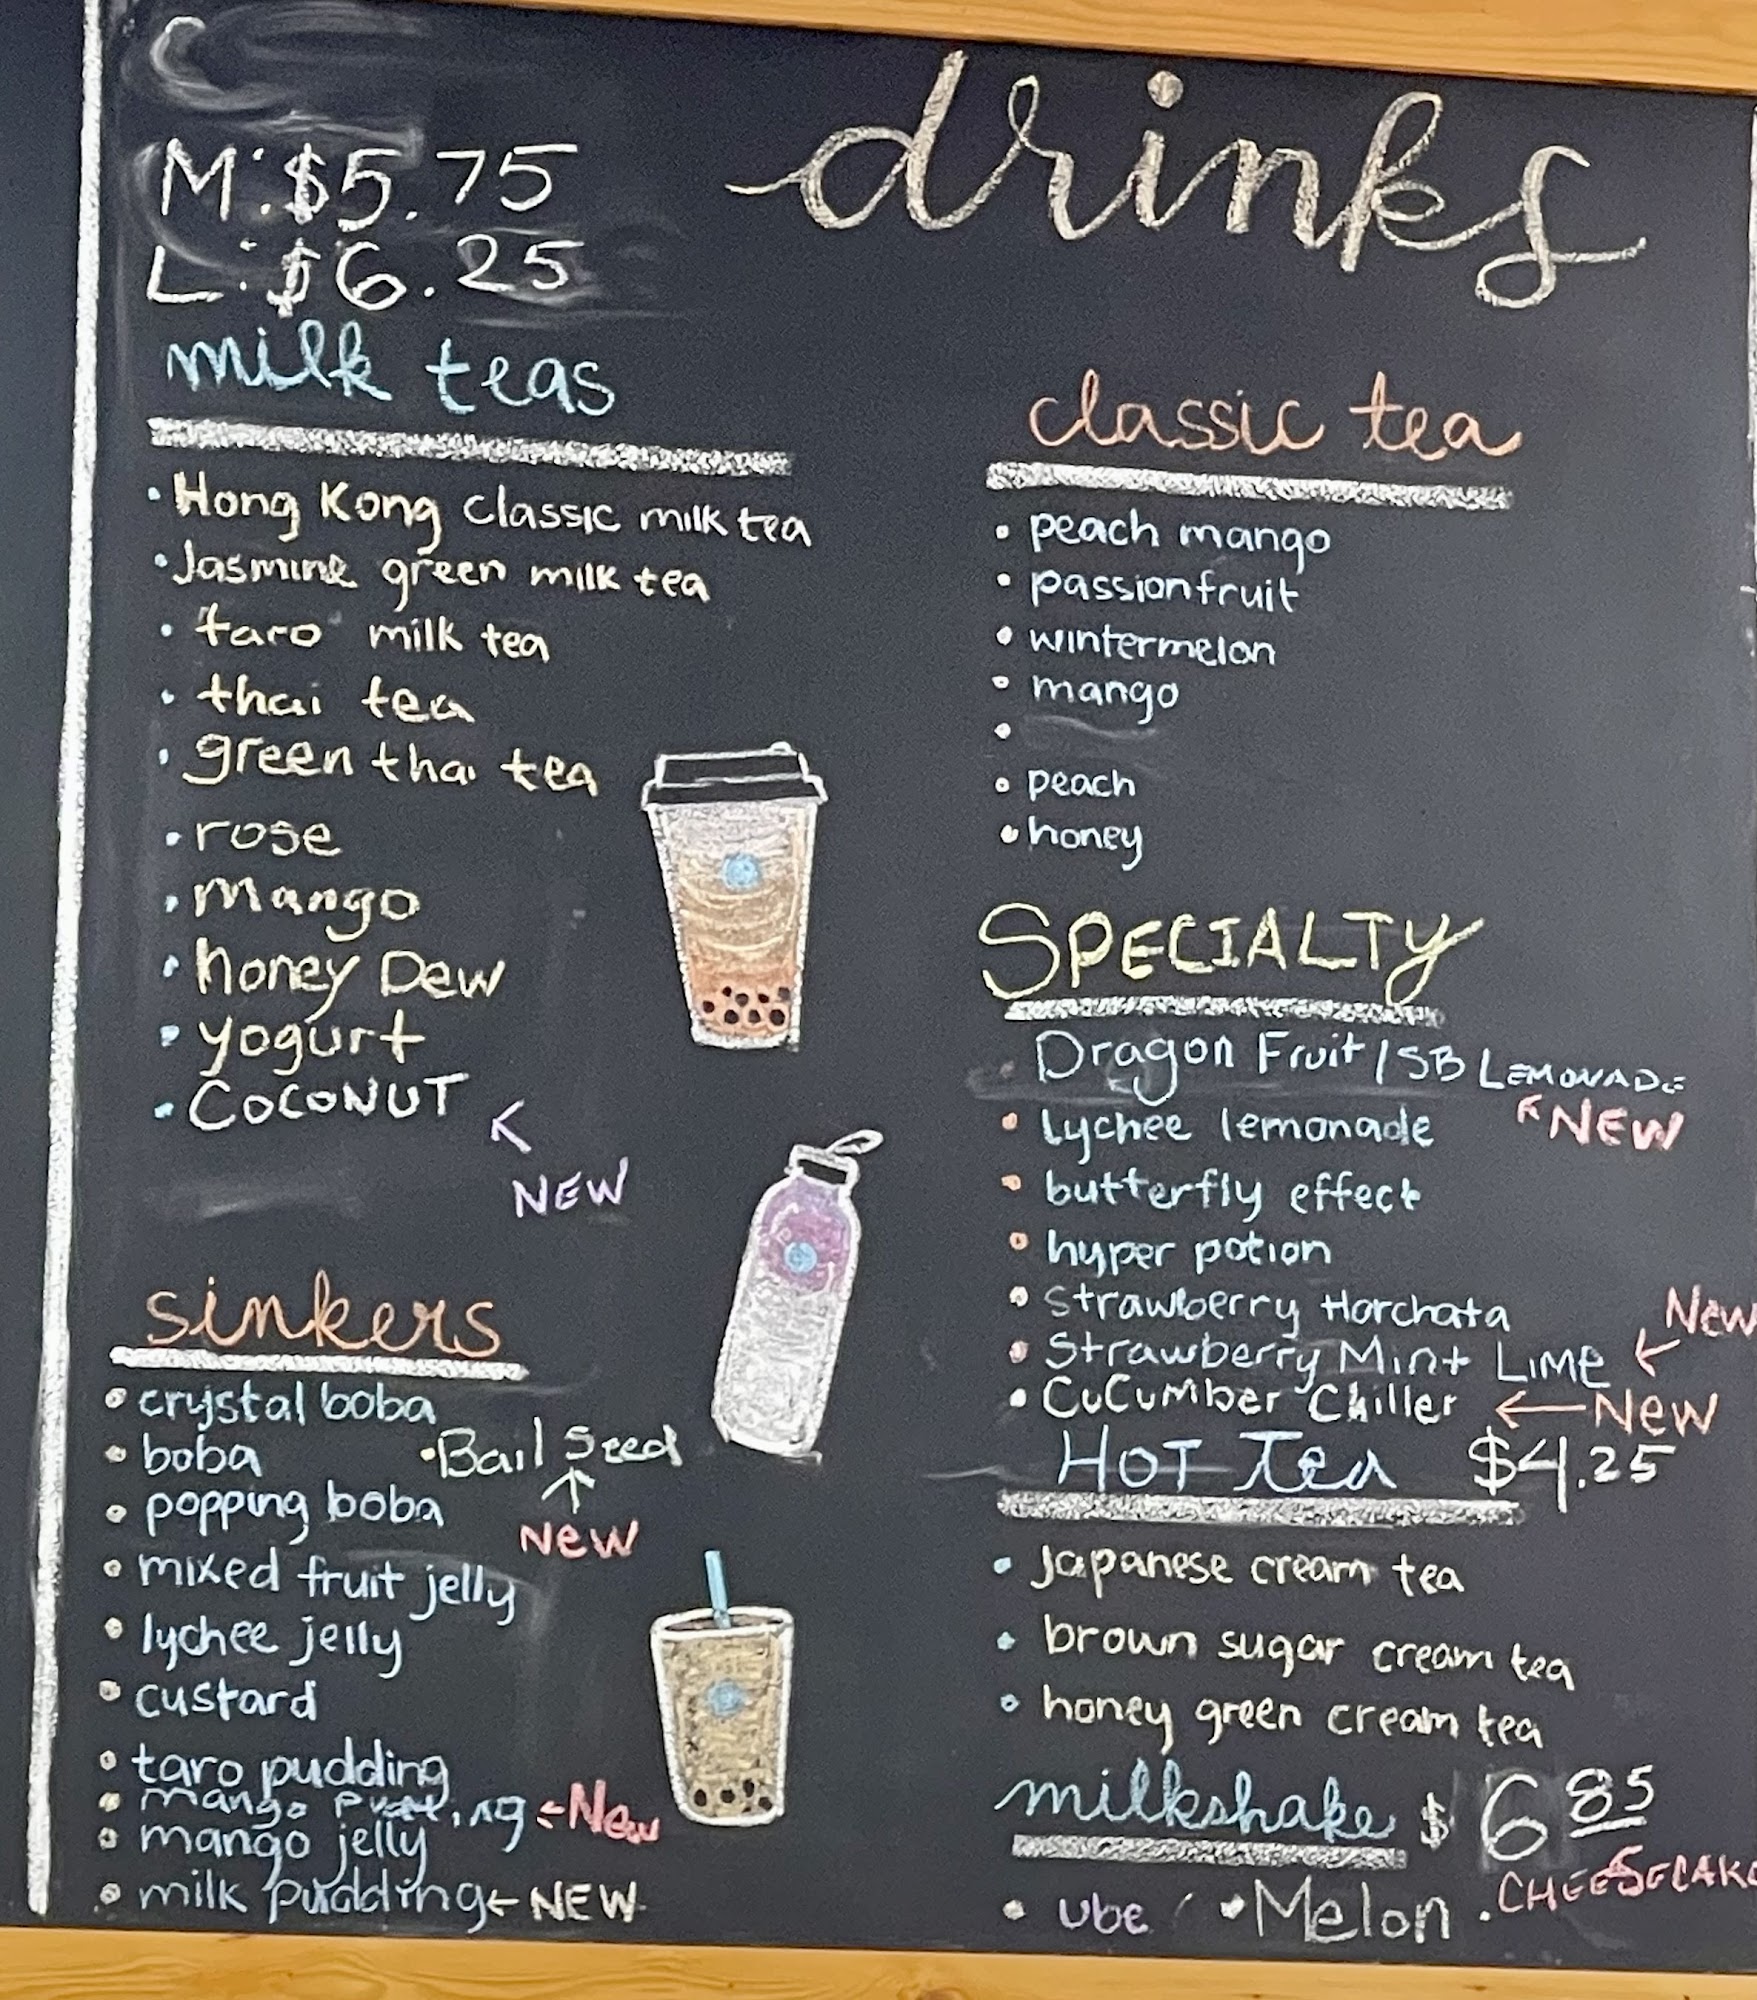 drinks
M: $5.75
L: $6.25
milk teas
• Hong Kong classic milk tea
• Jasmine green milk tea
• taro milk tea
• thai tea
• green thai tea
• rose
• mango
• honey Dew
• yogurt
• COCONUT
NEW
sinkers
• crystal boba
• boba
• Bail Seed
NEW
• popping boba
• mixed fruit jelly
• lychee jelly
• custard
• taro pudding
• mango pudding ← New
• mango jelly
• milk pudding ← NEW
classic tea
• peach mango
• passionfruit
• wintermelon
• mango
•
• peach
• honey
SPECIALTY
Dragon Fruit / SB LEMONADE
NEW
• lychee lemonade
• butterfly effect
• hyper potion
• Strawberry Horchata
New
• Strawberry Mint LIME
• CuCumber Chiller ← NEW
HOT Tea $4.25
• Japanese cream tea
• brown sugar cream tea
• honey green cream tea
milkshake $6.85
• ube • Melon • CHEESECAKE